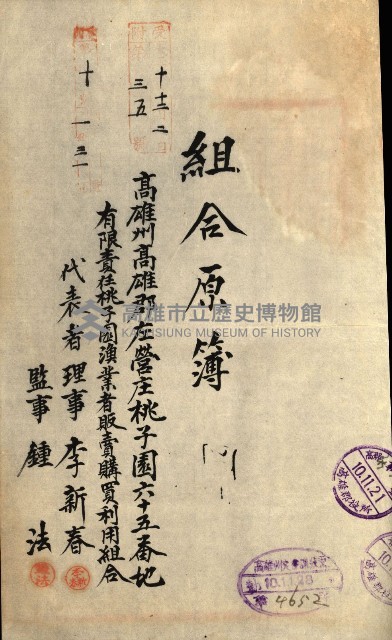 組合原簿
高雄州高雄郡左營庄桃子園六十五番地
有限責任桃子園漁業者販賣購買利用組合
代表者理事 李新春
監事 鍾法
十 十二 二
三五
十 一 三一
高雄市立歷史博物館
KAOHSIUNG MUSEUM OF HISTORY
10.11.21
高雄郡役所
10.11.28
4652